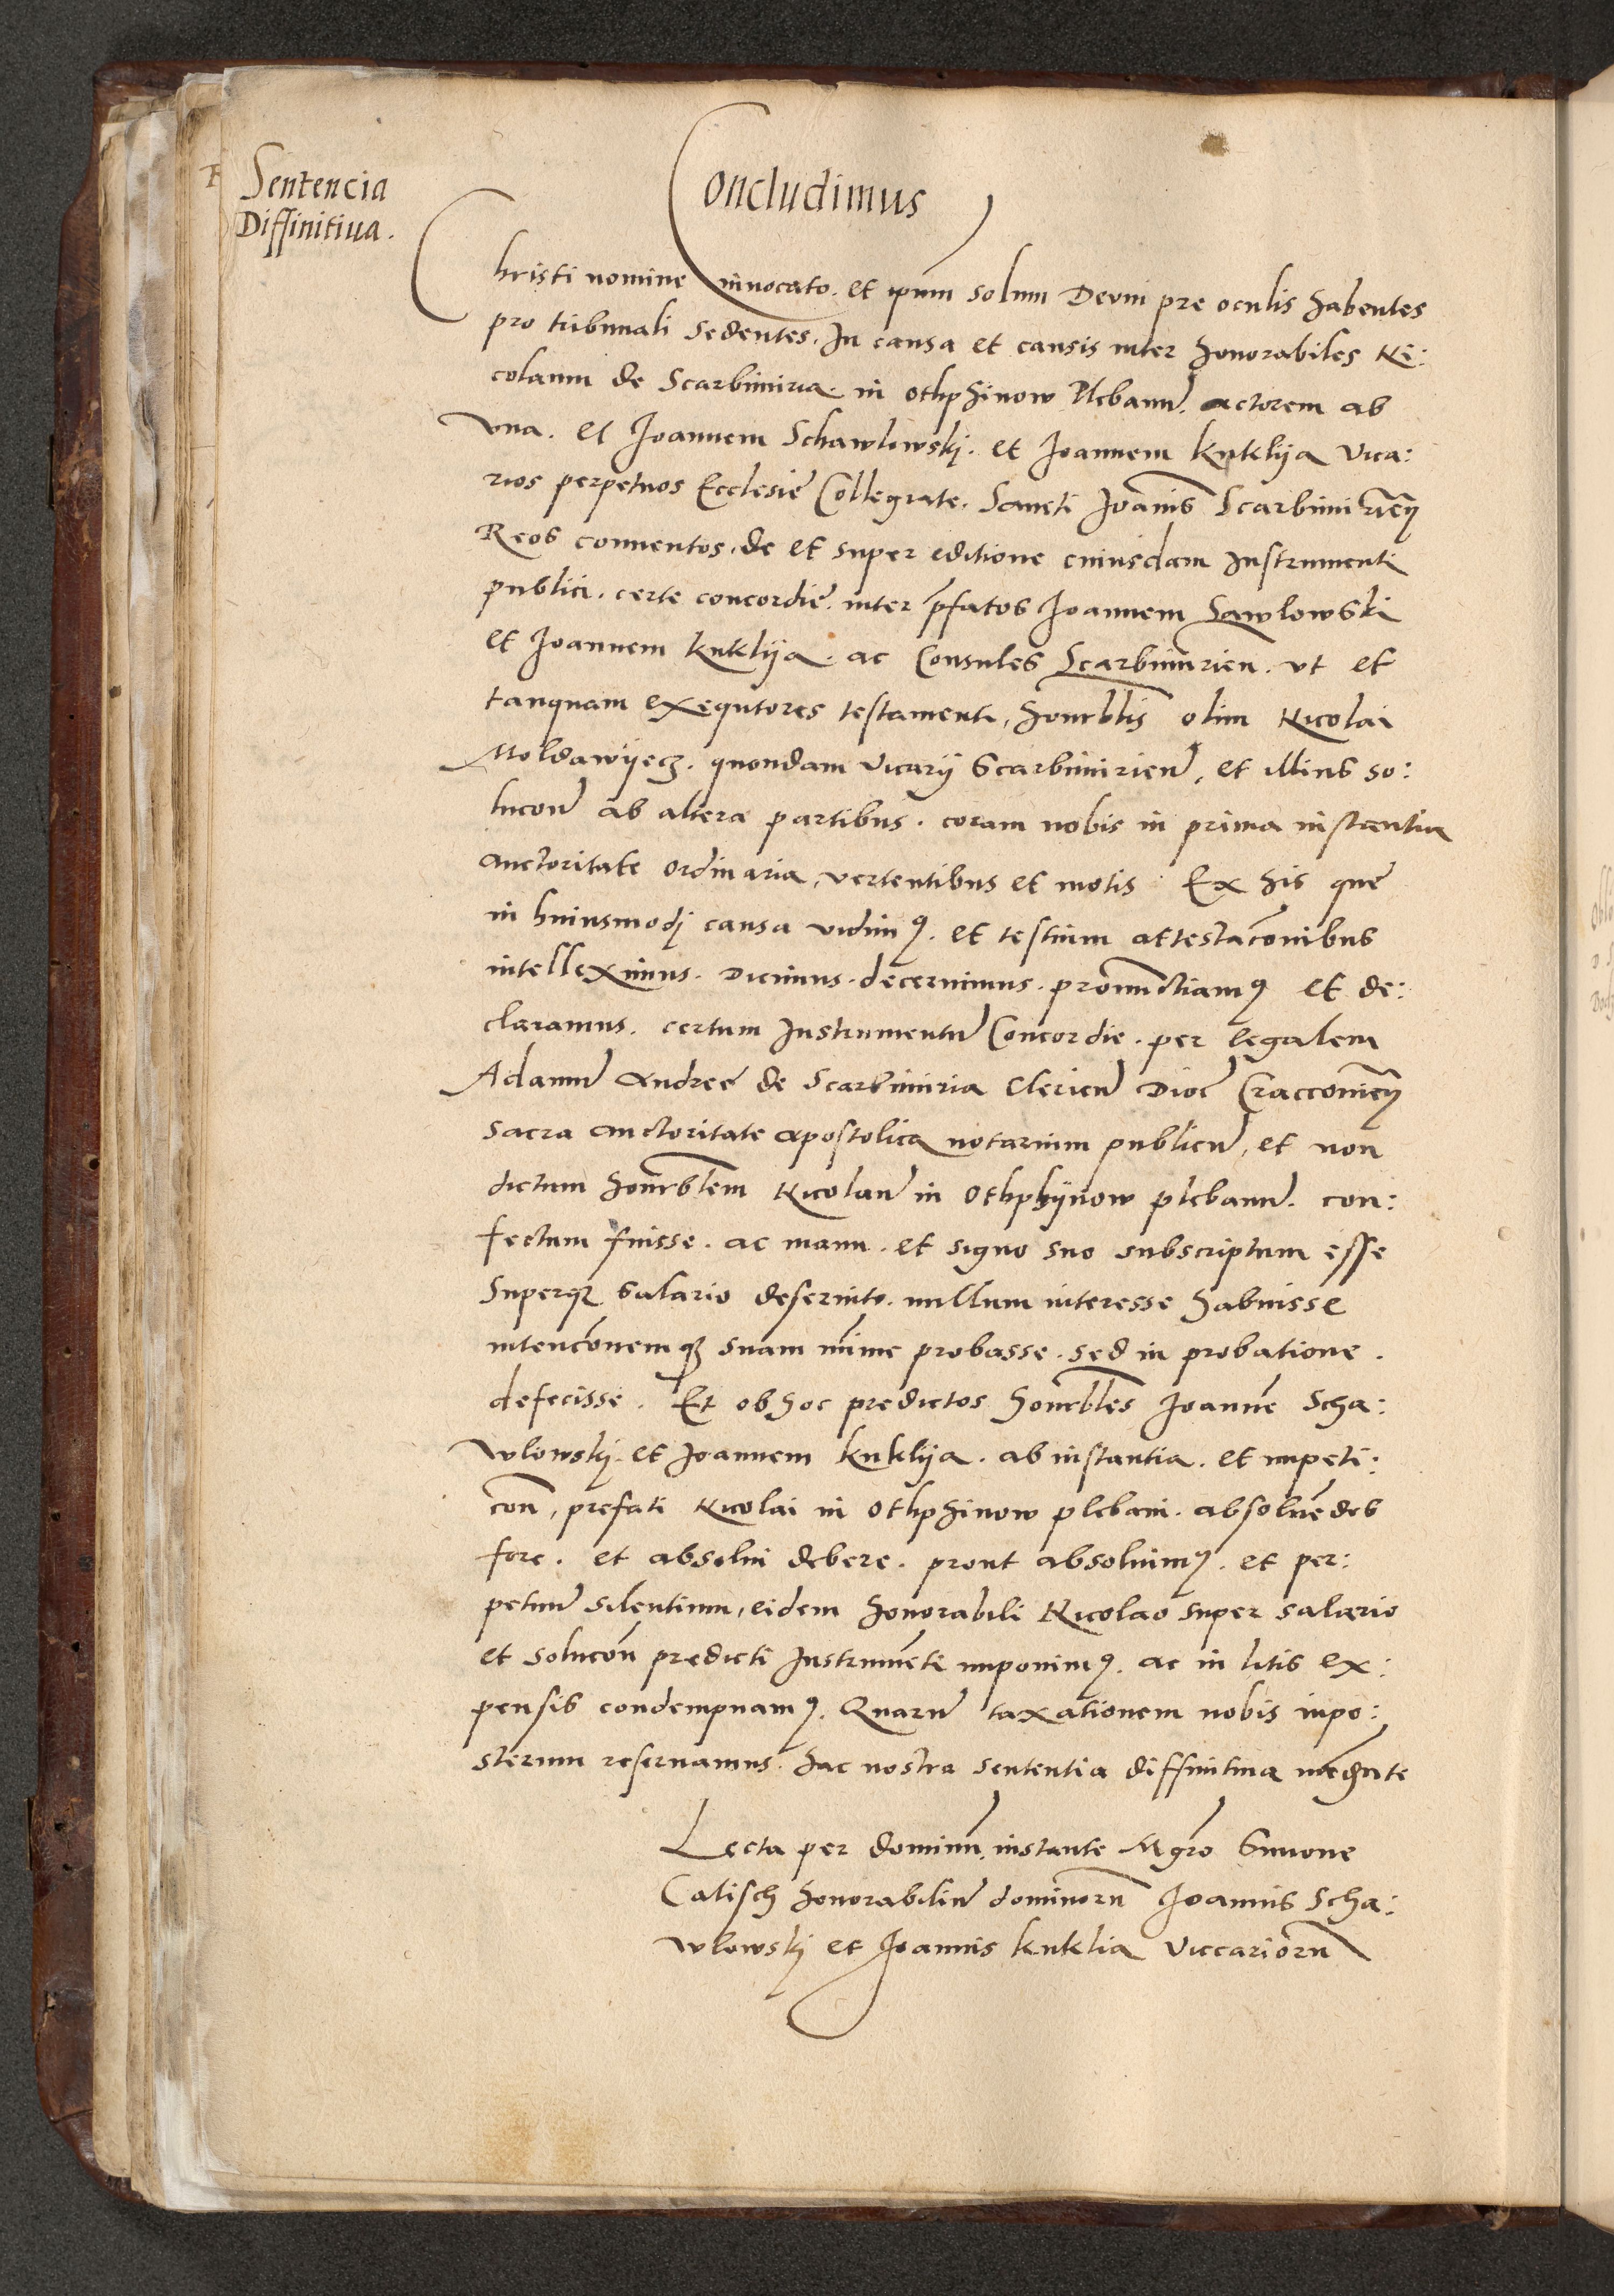 Sentencia
Diffinitiua.
Concludimus
Christi nomine inuocato. et ipum solum Deum pre oculis habentes
pro tribunali sedentes. In causa et causis inter honorabiles Ni:
colaum de Scarbimiria. in Othphinow Plebanu. actorem ab
vna. et Joannem Schawlowskj. et Joannem kuklija Vica:
rios perpetuos Ecclesie Collegiate. Sancti Joanis Scarbimirien
Reos conuentos, de et super editione cuiusdam Instrumenti
publici. certe concordie. inter pfatos Joannem Sawlowski
et Joannem kuklija. ac Consules Scarbimirien. vt et
tanquam exequtores testamenti, honrblis olim Nicolai
Moldawijecz. quondam vicarij Scarbimirien, et illius so:
lucon ab altera partibus. coram nobis in prima instantia
auctoritate ordinaria, vertentibus et motis Ex his que
in huiusmodj causa vidimꝰ. et testium attestaconibus
intelleximus. Dicimus. decernimus. pronunctiamꝰ et de:
claramus. certum Instrumentu Concordie. per legalem
Adamu Andree de Scarbimiria Clericu Dioc Craccouien
sacra auctoritate apostolica notarium publicu, et non
dictum honrblem Nicolau in Othphijnow plebanu. con:
fectum fuisse. ac manu. et signo suo subscriptum esse
Superqꝫ salario deseruito. nullum interesse habuisse
intenconemqꝫ suam mime probasse. sed in probatione.
defecisse. Et ob hoc predictos honrbles Joanne Scha:
wlowskj. et Joannem kuklija. ab instantia. et impeti:
con, prefati Nicolai in Othphinow plebani. absoluedos
fore. et absolui debere. prout absoluimꝰ. et per:
petuu silentium, eidem honorabili Nicolao super salario
et solucon predicti Instrumeti imponimꝰ. ac in litis ex:
pensis condempnamꝰ. Quaru taxationem nobis inpo:
sterum reseruamus. hac nostra sententia diffinitiua
Lecta per dominu, instante Mgro Simone
Calisch honorabiliu dominoru Joannis Scha:
wlowskj et Joannis kuklia Viccarioru